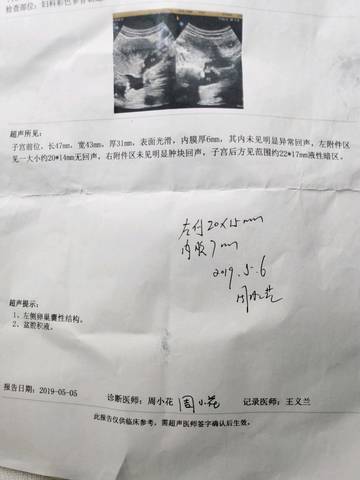 检查部位：妇科彩色多普勒
超声所见：
子宫前位，长47mm，宽43mm，厚31mm，表面光滑，内膜厚6mm，其内未见明显异常回声，左附件区
见一大小约20*14mm无回声，右附件区未见明显肿块回声，子宫后方见范围约22*17mm液性暗区。
左付20×15mm
内膜7mm
2019.5.6
超声提示：
1、左侧卵巢囊性结构。
2、盆腔积液。
报告日期：2019-05-05 诊断医师：周小花 周小花 记录医师：王义兰
此报告仅供临床参考，需超声医师签字确认后生效。